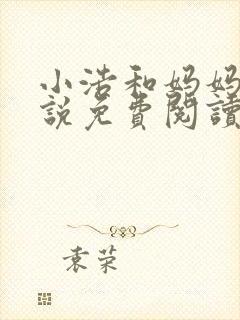 小浩和妈妈
說免費閱讀
袁荣